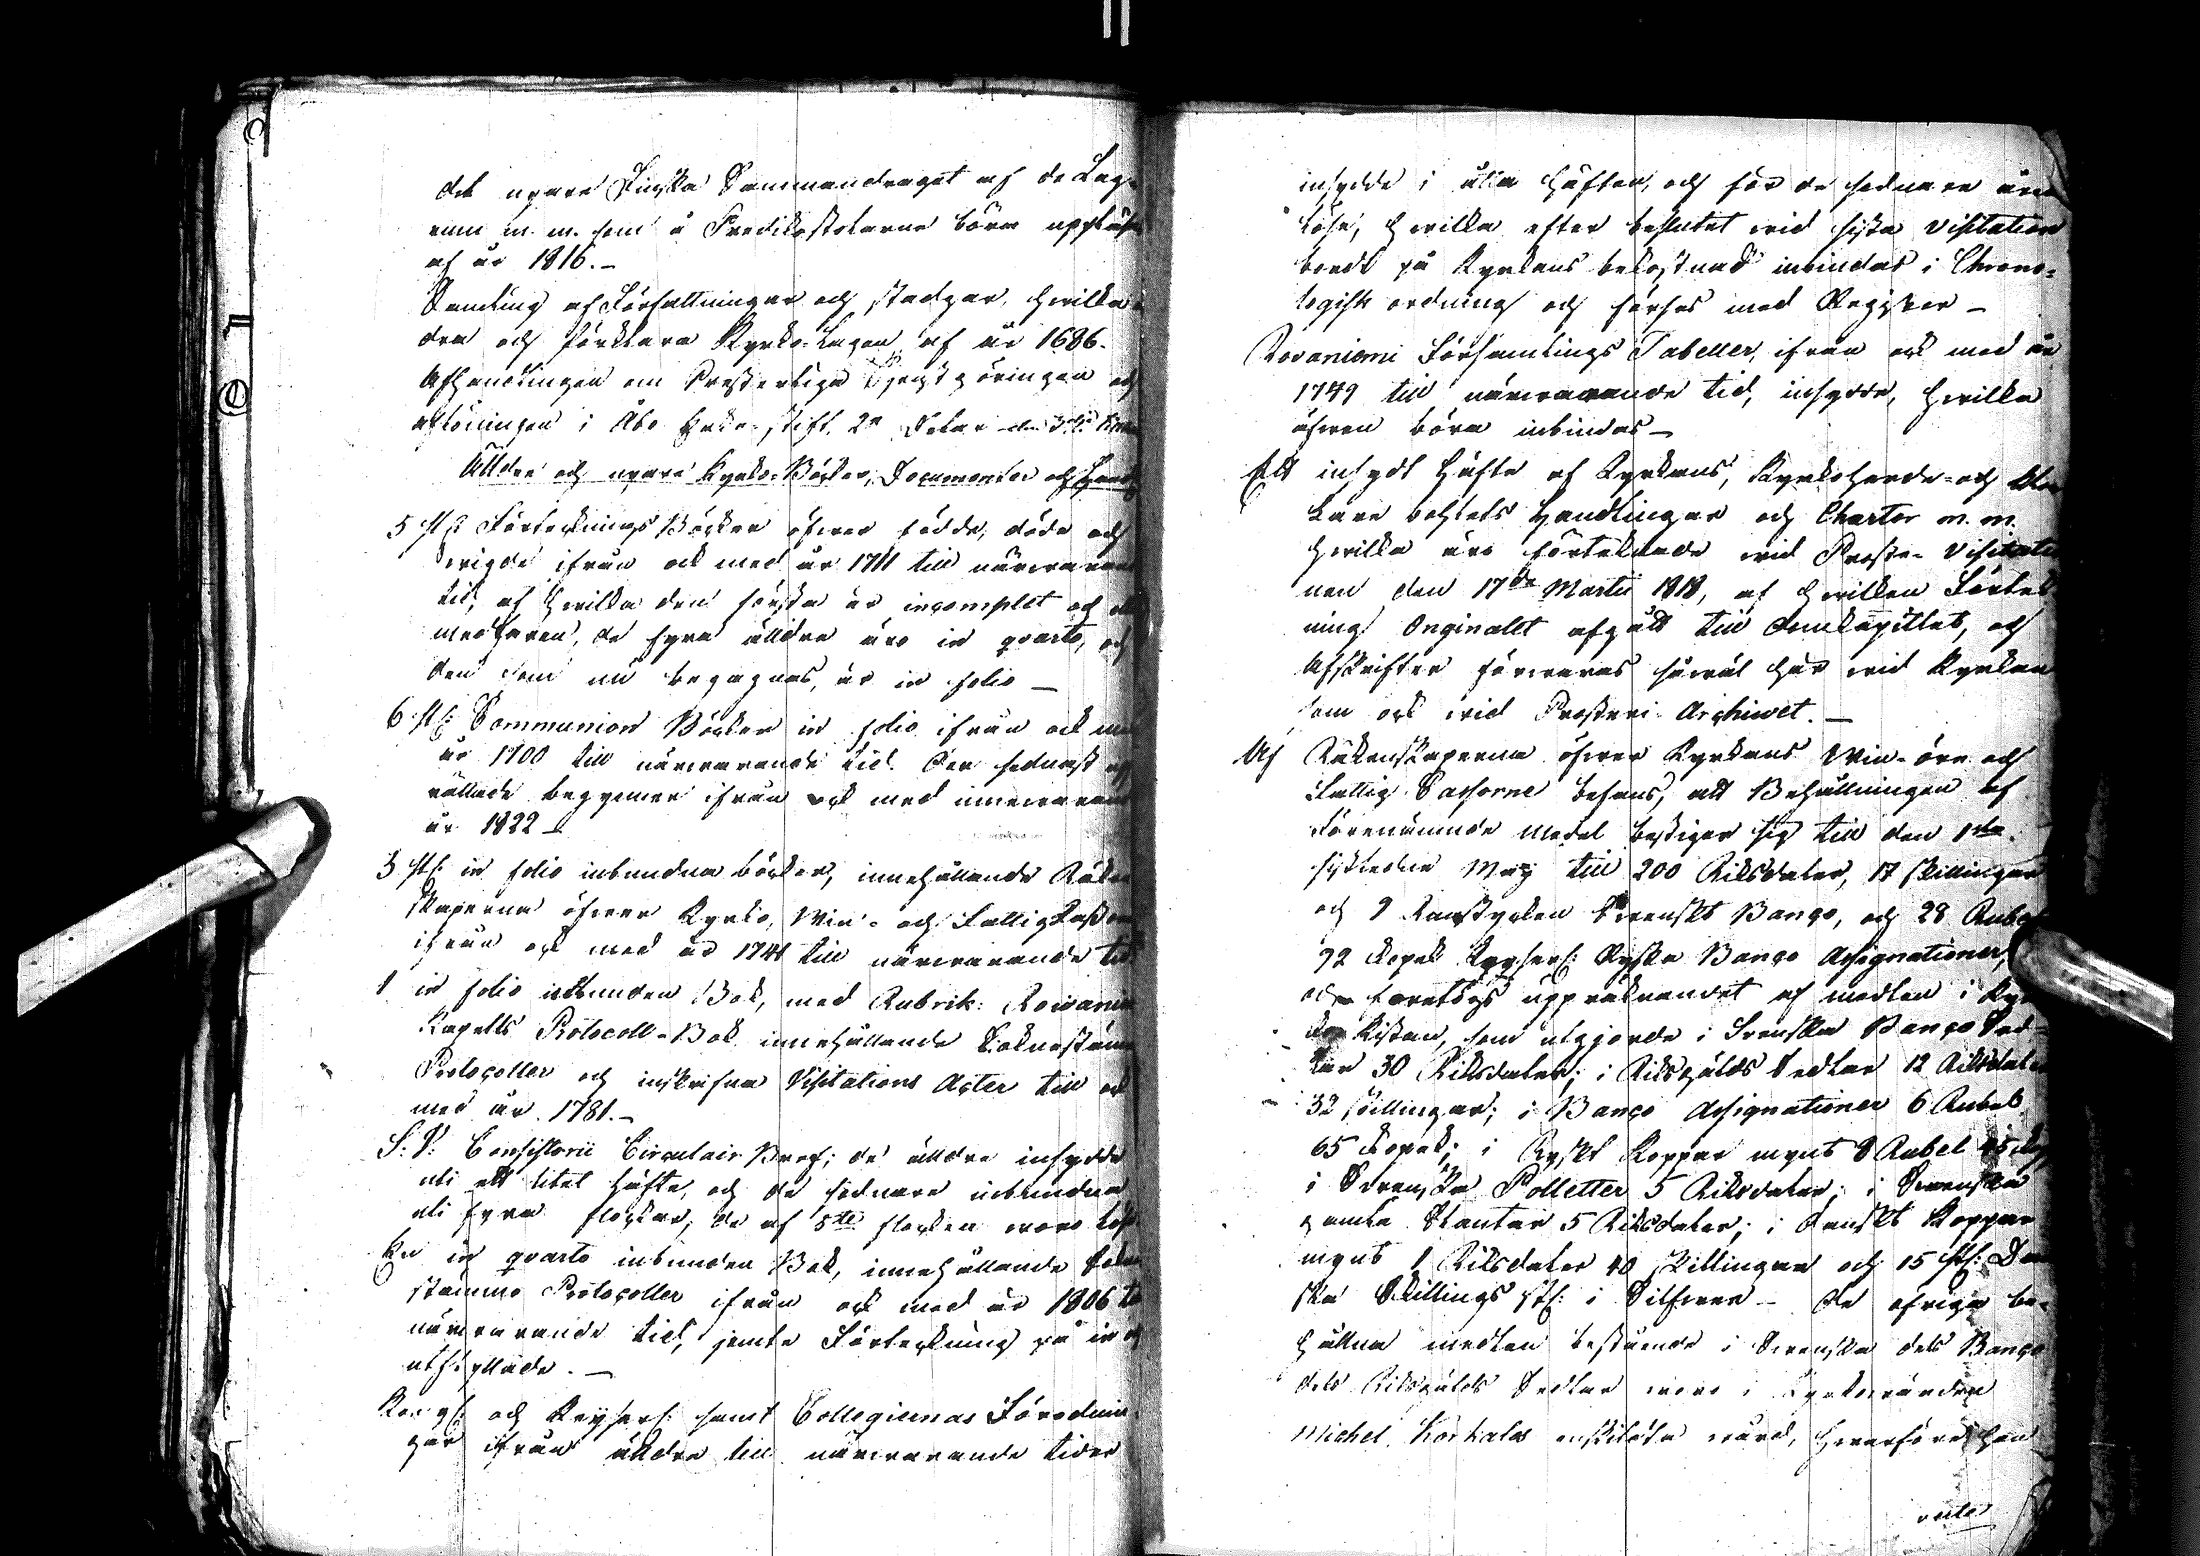 det nyare Finska Sammandraget af de Lag-
rum m. m. som å Predikostolarne böra uppläsas
af år 1816. –
Samling af Författningar och stadgar, hvilka
dra och förklara Kyrko-Lagen af år 1686.
Afhandlingen om Presterliga
aflöningen i Åbo Erke-stift, 2ne Delar
Äldre och nyare Kyrko-Böcker, Documenter och Handl
5 st: Förtecknings Böcker öfver födde, döde och
vigde ifrån och med år 1711 till närvarande
tid, af hvilka den första är incomplet och
medfaren, de fyra älldre äro in qvarto, och
den som nu begagnas, är in folio –
6 st: Communion Böcker in folio ifrån och med
år 1700 till närvarande tid. Den sednast upp
rättade begynner ifrån och med innevarande
år 1822 –
3 st: in folio inbundna böcker, innehållande Räken
skaperna öfver Kyrko, Vin- och Fattig Cassorne
ifrån och med år 1741 till närvarande tid
1 in folio inbunden Bok, med Rubrik: Rovaniemi
Kapells Protocoll-Bok innehållande Soknestämmo
Protocoller och inskrifna Visitations Acter till och
med år 1781. –
S: V: Consistorii Circulair Bref; de älldre insydde
uti ett litet häfte, och de sednare inbundna
uti fyra flockar; de af 5te flocken voro lösa
En in qvarto inbunden Bok, innehållande Sokne
stämmo Protocoller ifrån och med år 1806 till
närvarande tid, jemte Förteckning på in och
utflyttade. –
Kongl: och Keyserl: samt Collegiernas Förordnin-
gar ifrån älldre till närvarande tider
insydde i häften, och för de sednare åren
löse, hvilka efter beslutet vid sista Visitation
bordt på Kyrkans bekostnad inbindas i Chrono-
logisk ordning och förses med Register –
Rovaniemi Församlings Tabeller, ifrån och med år
1749 till närvarande tid, insydde, hvilka
äfven böra inbindas –
Ett insydt häfte af Kyrkans, Kyrkoherde- och Kloc
kare bohlets Handlingar och Chartor m. m.
hvilka äro förteknade vid Proste-Visitatio
nen den 17de Martii 1818, af hvilken Förtek
ning Originalet afgått till Domkapitlet, och
Afskrifter förvaras såväl här vid Kyrkan
som och vid Prosteri-Archivet. –
Af Räkenskaperna öfver Kyrkans Vin-öre och
Fattig Cassorne befans, att Behållningen af
Förenämnde Medel bestiger sig till den 1sta
sistledne Maij till 200 Riksdaler, 17 skillingar
och 9 Runstycken Svenskt Banco, och 28 Rubel
92 Kopek Keyserl: Ryska Banco Assignationer,
och företogs uppräknandet af medlen i Kyr
ko Kistan, som utgjorde i Svenska Banco Sed-
lar 30 Riksdaler; i Riksgälds Sedlar 12 Riksdaler
32 skillingar; i Banco Assignationer 6 Rubel
65 Kopek; i Ryskt Koppar mynt 8 Rubel 45 Kop
i Svenska Polletter 5 Riksdaler; i Svenska
gamla Slantar 5 Riksdaler; i Danskt Koppar
mynt 1 Riksdaler 40 skillingar och 15 st: Dan
ska Skillings st: i Silfver – De öfriga be-
hållna medlen bestående i Svenska dels Banco
dels Riksgälds Sedlar voro i Kyrkovärden
Michel Korkalos enskilda vård, hvarföre han